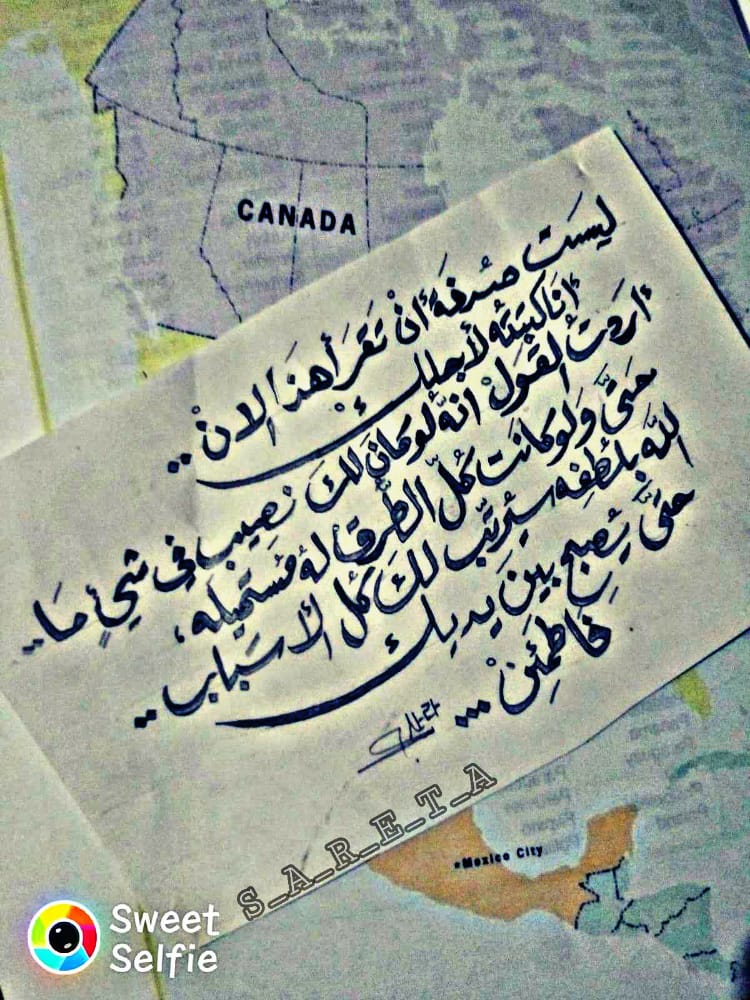 CANADA
ليسَت صُدفَةً أنْ تَقرَأ هذا الانْ ..
أنا كتبتُه لأجلِكْ
أردتُ القَولْ انّهُ لو كانَ لكَ نَصِيب في شيءٍ مَا ..
حتىَّ ولَو كانَت كُلّ الطُرق لهُ مُستحيله ،
الله بلُطفِه سيُرتّب لكَ كُل الأسباب ..
حتىَّ يُصبح بين يديك
فاطمَئِنْ ...
S_A_R_E_T_A
Mexico City
Sweet
Selfie